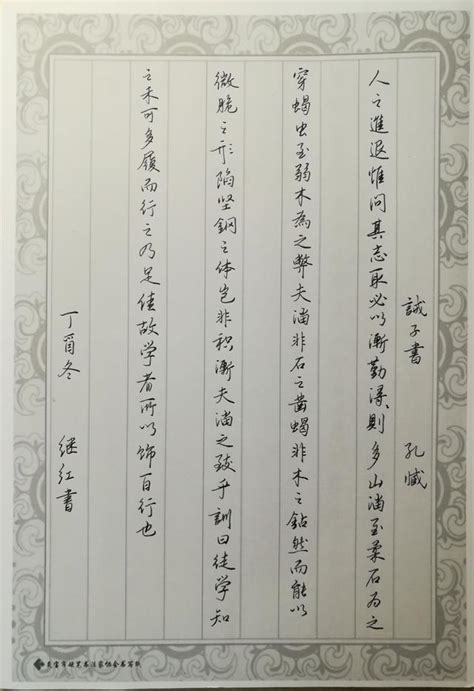 誡子書 孔臧
人之進退惟问其志取必以漸勤淂則多山溜至柔石为之
穿蝎虫至弱木為之弊夫溜非石之凿蝎非木之鉆然而能以
微脆之形陷坚鋼之体岂非积漸夫溜之致乎訓曰徒学知
之未可多履而行之乃足佳故学者所以饰百行也
丁酉冬 继红書
灵宝市硬笔书法家协会书写纸